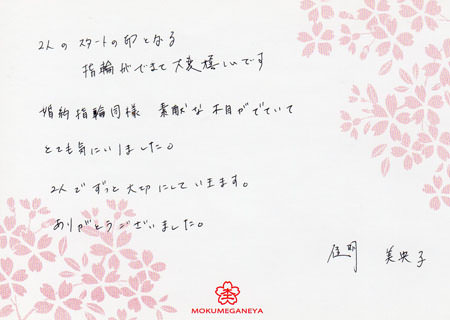 2人のスタートの印となる
指輪ができて大変嬉しいです
婚約指輪同様 素敵な木目がでていて
とても気にいりました。
2人でずっと大切にしていきます。
ありがとうございました。
美央子
MOKUMEGANEYA